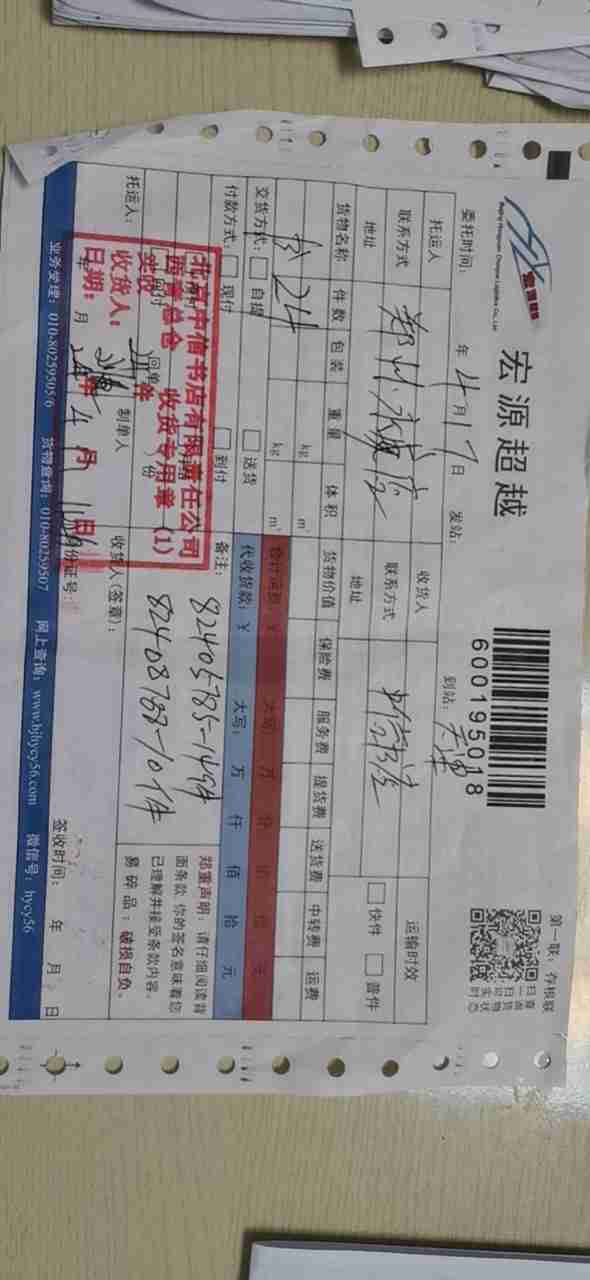 宏源超越
Beijing Hongyuan Chaoyue Logistics Co., Ltd.
600195018
第一联：存根联
扫一扫
查询货物
实时状态
委托时间： 年 4月17日 发站： 到站： 天津
托运人 收货人 运输时效
联系方式 郑州 联系方式 中信书店 快件 普件
地址 地址
货物名称 件数 包装 重量 体积 货物价值 保险费 服务费 提货费 送货费 中转费 运费
书 24 kg m³
kg m³
交货方式： 自提 送货 合计运费：￥ 大写： 万 仟 佰 拾 元
代收货款：￥ 大写： 万 仟 佰 拾 元
付款方式： 现付 到付 备注：
回单 份
82405785-14件
82408788-10件
郑重声明：请仔细阅读背
面条款 你的签名意味着您
已理解并接受条款内容。
易碎品：破损自负。
北京中信书店有限责任公司
西青总仓 收货专用章（1）
实收 24 件
收货人：
日期： 年 4 月 日
托运人： 制单人 收货人(签章)：
身份证号： 签收时间： 年 月 日
业务受理：010-80259505/6 货物查询：010-80259507 网上查询：www.bjhycy56.com 微信号：hycy56